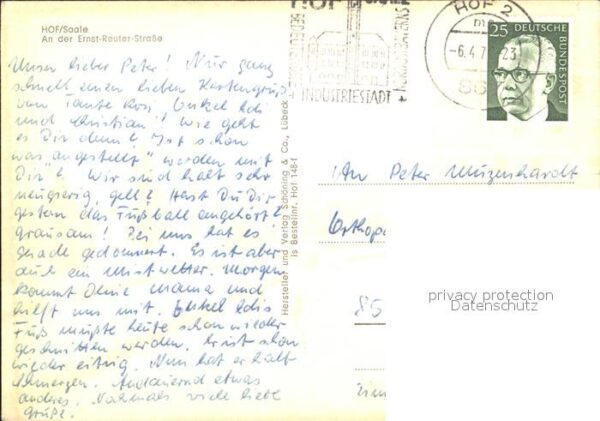 HOF/Saale
An der Ernst-Reuter-Straße
Unser lieber Peter! Nur ganz
schnell einen lieben Kartengruß
von Tante Rosi, Onkel Edi
und Christian! Wie geht
es Dir denn? Ist schon
was "angestellt" worden mit
Dir? Wir sind halt sehr
neugierig, gell? Hast Du Dir
gestern das Fußball angehört?
grausam! Bei uns hat es
gerade gedonnert. Es ist aber
auch ein Mistwetter. Morgen
kommt Deine Mama und
hilft uns mit. Onkel Edis
Fuß mußte heute schon wieder
geschnitten werden. Er ist schon
wieder eitrig. Nun hat er halt
Schmerzen. Andauernd etwas
anderes. Nochmals viele liebe
Grüße.
Hersteller und Verlag Schöning & Co., Lübeck
Bestellnr. Hof 148-1
HOF
INDUSTRIESTADT
HOF 2
-6.4.7
23
25
DEUTSCHE
BUNDESPOST
An Peter
Orthopä
85
privacy protection
Datenschutz